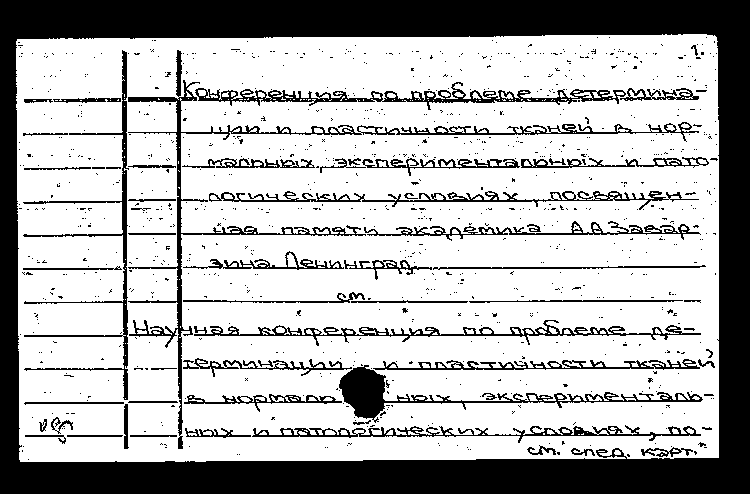 1.
Конференция по проблеме детермина-
ции и пластичности тканей в нор-
мальных, экспериментальных и пато-
логических условиях, посвящен-
ная памяти академика А.А.Завар-
зина. Ленинград.
см.
Научная конференция по проблеме де-
терминации и пластичности тканей
в нормальных, эксперименталь-
ных и патологических условиях, по-
см. след. карт.